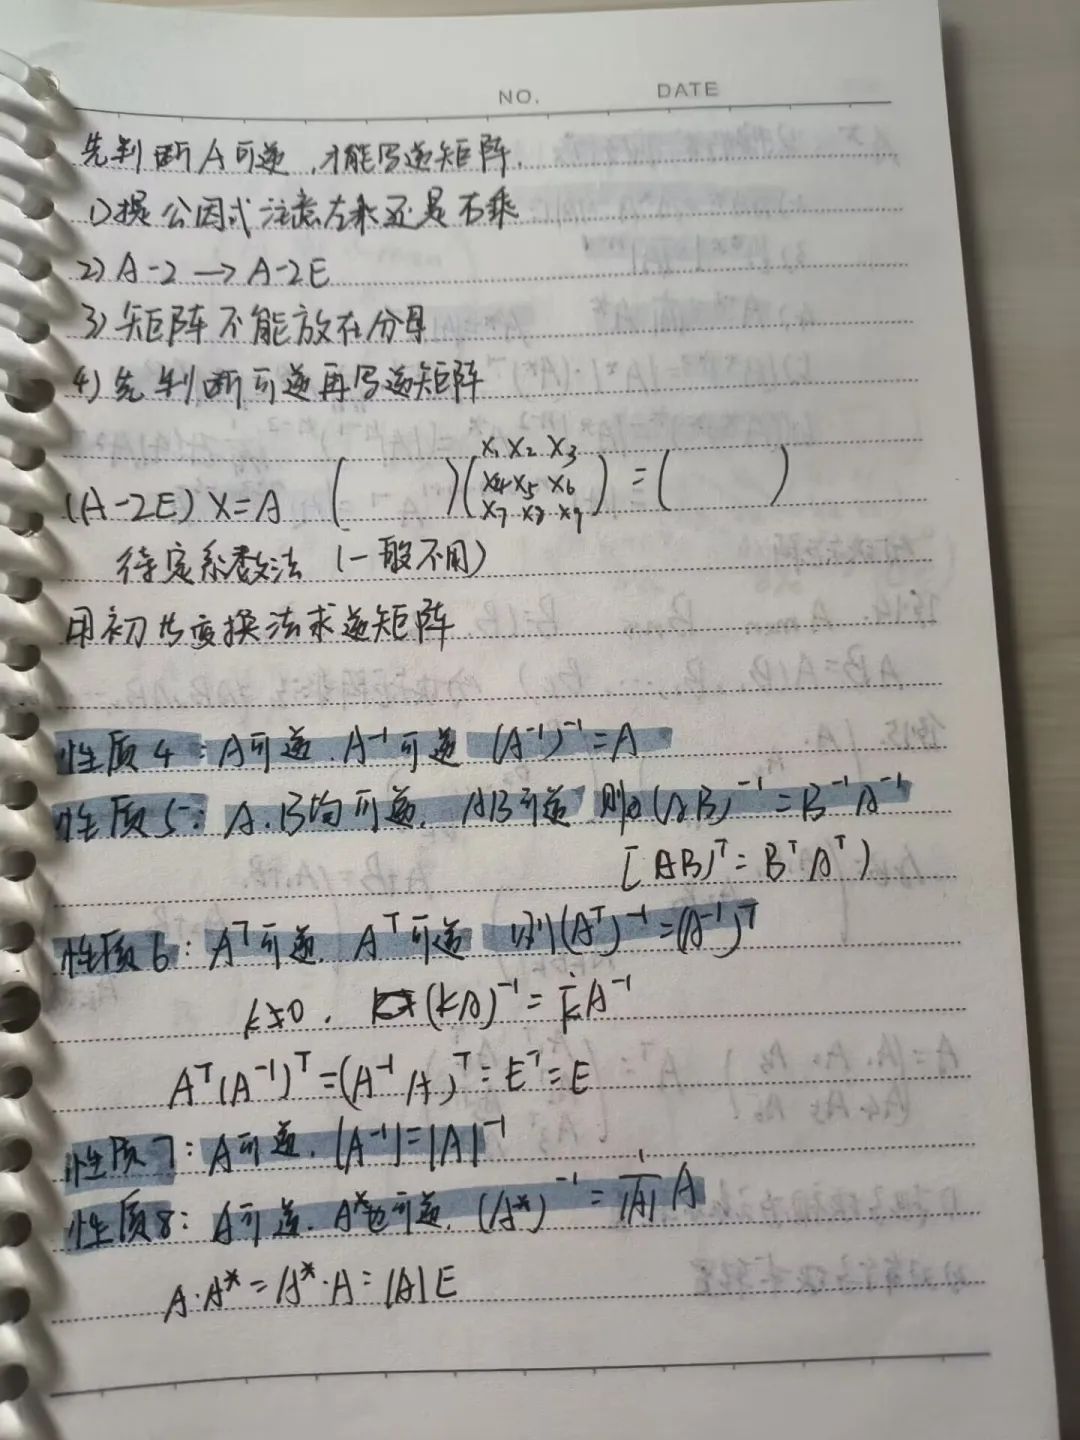 NO. DATE
先判断A可逆,才能写逆矩阵.
1)提公因式注意左乘还是右乘
2) A-2 → A-2E
3) 矩阵不能放在分母
4) 先判断可逆再写逆矩阵
(A-2E) X=A ( )(x₁ x₂ x₃
x₄ x₅ x₆
x₇ x₈ x₉) = ( )
待定系数法 (一般不用)
用初等变换法求逆矩阵
性质4:A可逆.A⁻¹可逆 (A⁻¹)⁻¹=A
性质5:A.B均可逆.AB可逆 则(AB)⁻¹=B⁻¹A⁻¹
[AB)ᵀ=BᵀAᵀ)
性质6:Aᵀ可逆.Aᵀ可逆 则(Aᵀ)⁻¹=(A⁻¹)ᵀ
k≠0. (kA)⁻¹=1/k A⁻¹
Aᵀ(A⁻¹)ᵀ=(A⁻¹A)ᵀ=Eᵀ=E
性质7:A可逆.|A⁻¹|=|A|⁻¹
性质8:A可逆.A*也可逆.(A*)⁻¹=1/|A| A
A·A*=A*·A=|A|E